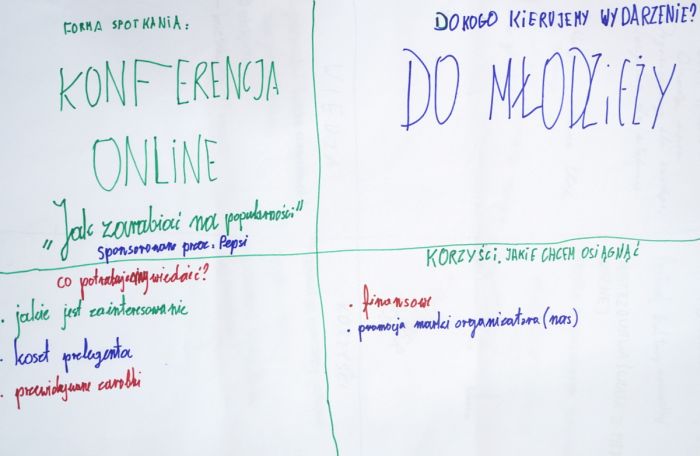 FORMA SPOTKANIA:
KONFERENCJA
ONLINE
„Jak zarabiać na popularności"
sponsorowane przez. Pepsi
DO KOGO KIERUJEMY WYDARZENIE?
DO MŁODZIEŻY
co potrzebujemy wiedzieć?
• jakie jest zainteresowanie
• koszt prelegenta
• przewidywane zarobki
KORZYŚCI, JAKIE CHCEM OSIĄGNĄĆ
• finansowe
• promocja marki organizatora (nas)